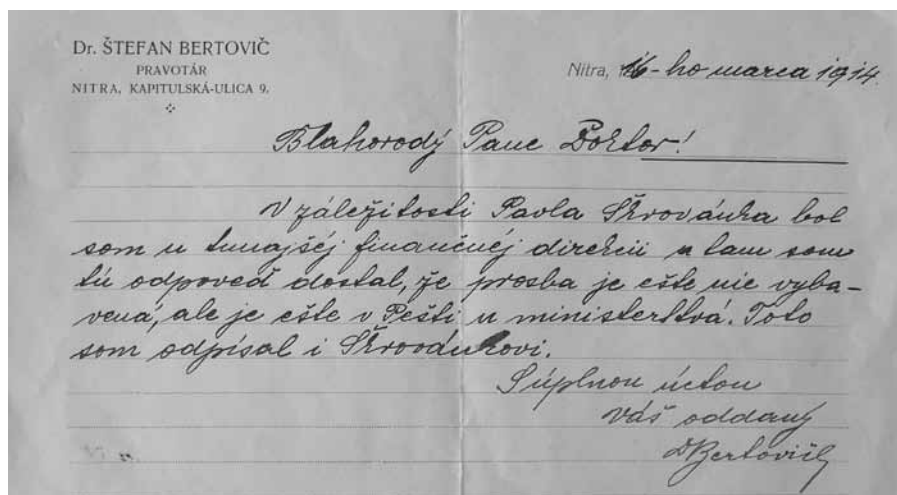 Dr. ŠTEFAN BERTOVIČ
PRAVOTÁR
NITRA, KAPITULSKÁ-ULICA 9.
Nitra, 16-ho marca 1914.
Blahorodý Pane Doktor!
V záležitosti Pavla Škrovánka bol
som u tunajšéj finančnéj direkcii a tam som
tú odpoveď dostal, že prosba je ešte nie vyba-
vená, ale je ešte v Pešti u ministerstvá. Toto
som odpísal i
S úplnou úctou
Váš oddaný
DrBertovič